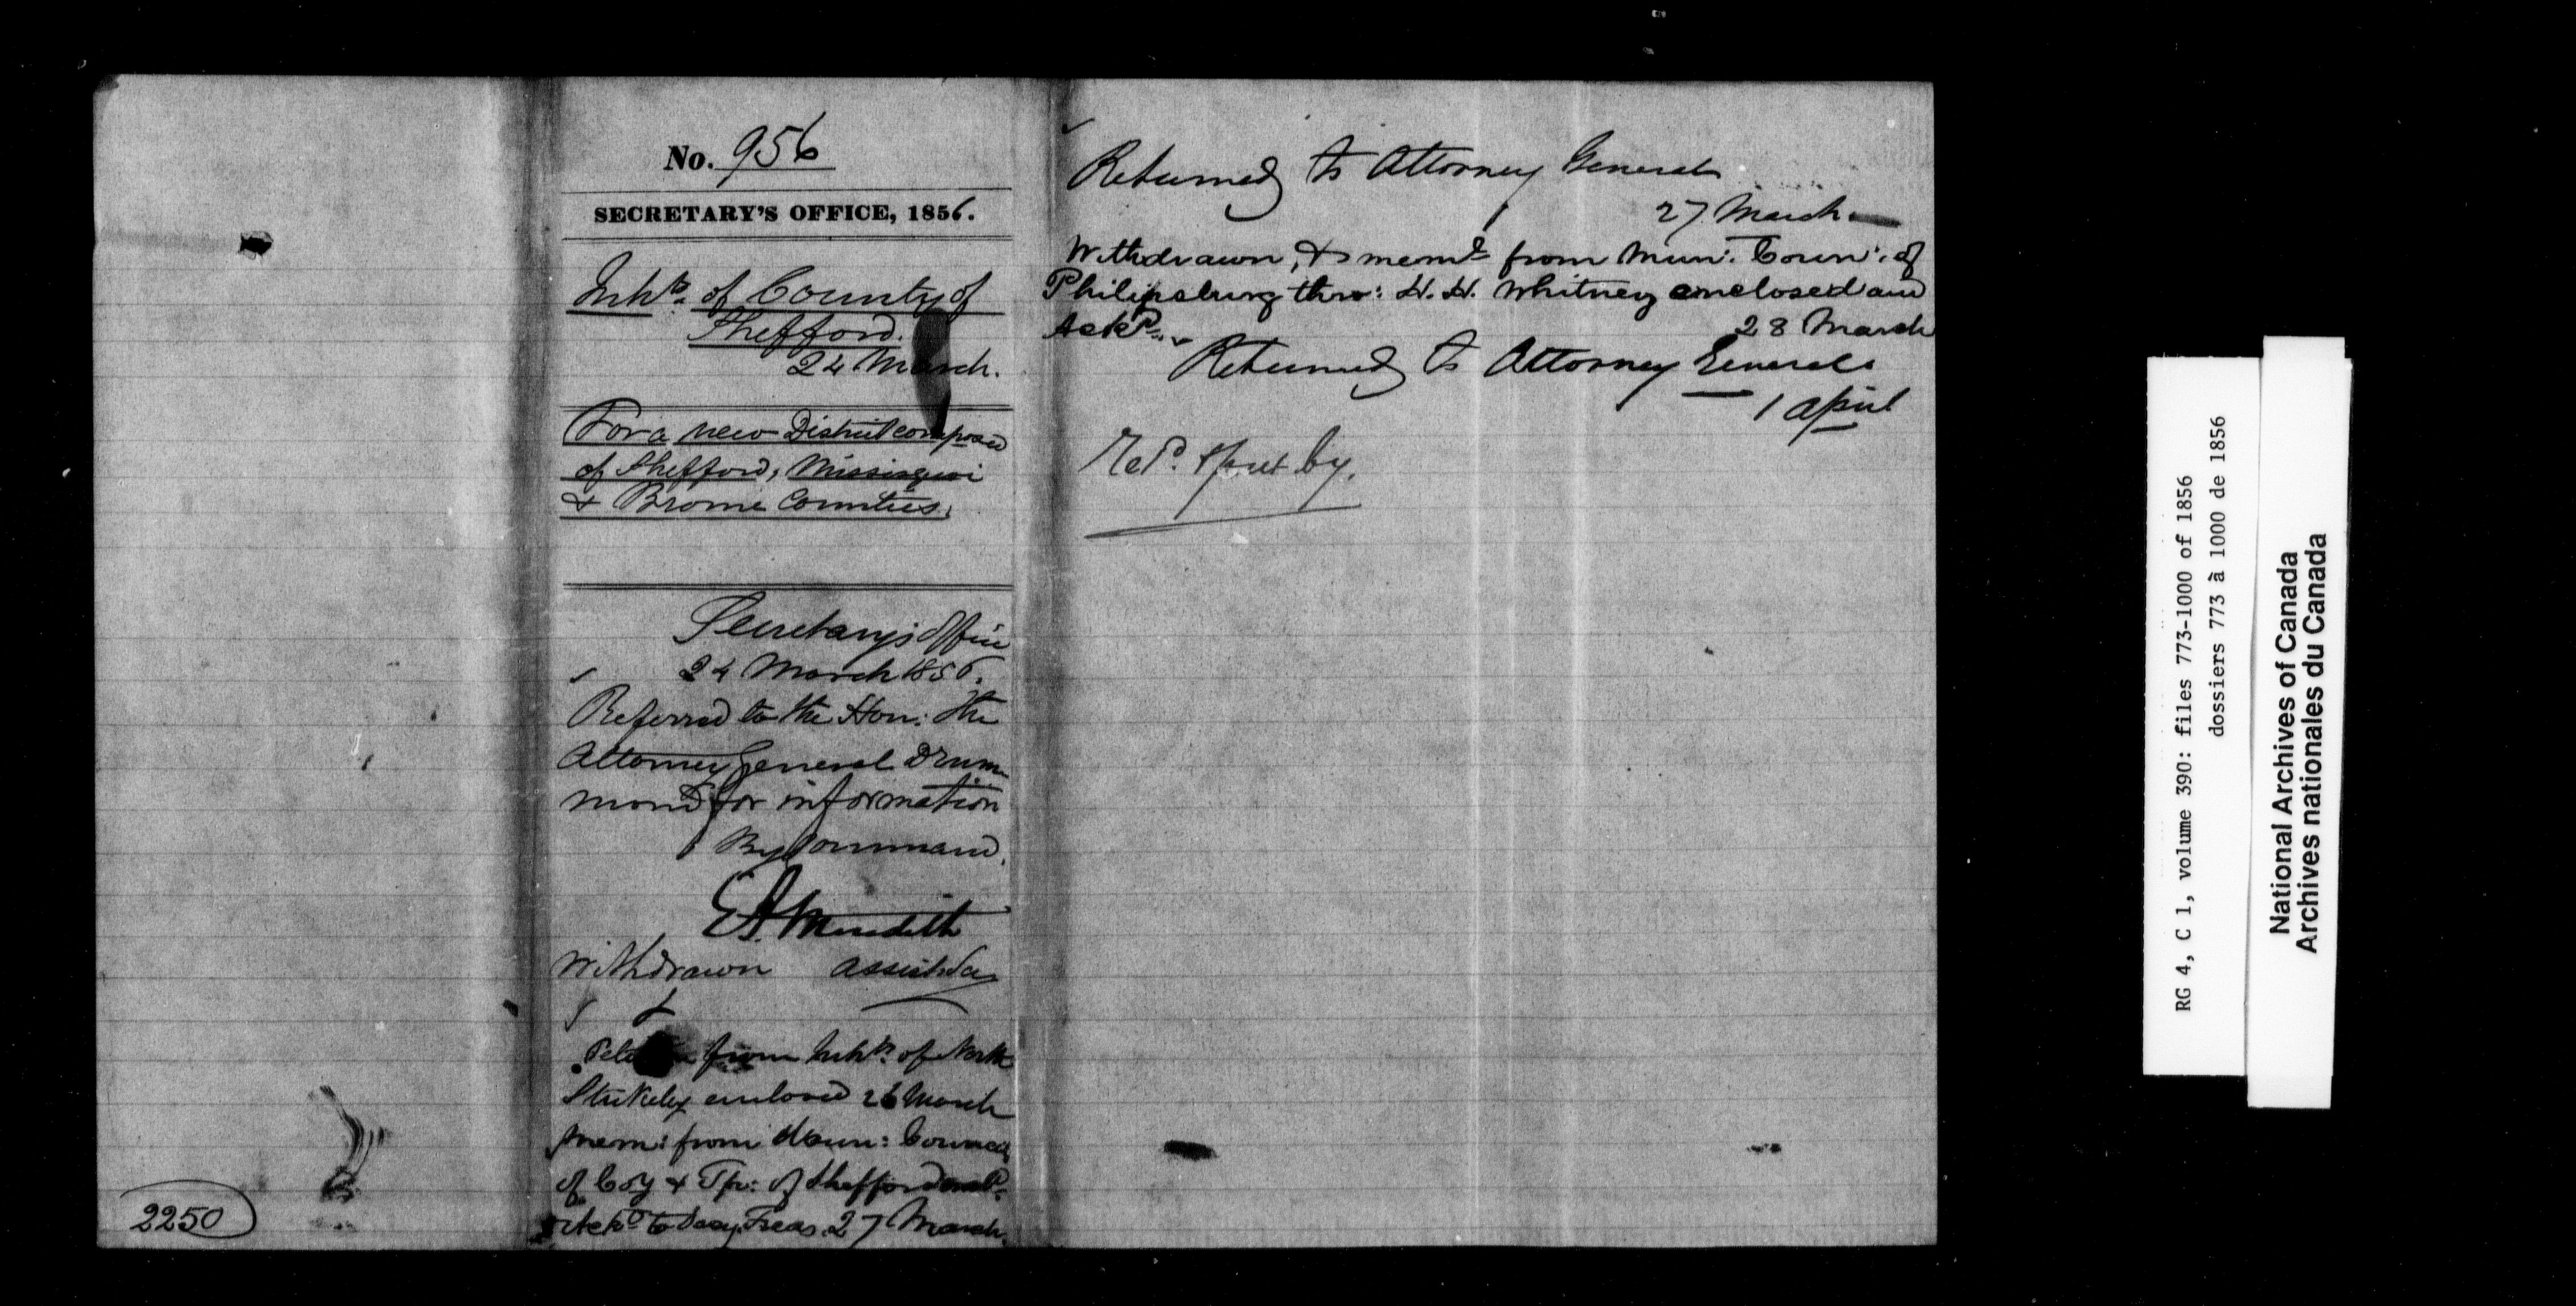 No. 956
SECRETARY'S OFFICE, 1856.
Inhts. of County of
Shefford.
24 March.
For a new District composed
of Shefford, Missisquoi
& Brome Counties.
Secretary's Office
24 March 1856.
Referred to the Hon: the
Attorney General Drum-
mond for information
By Command,
E A Meredith
Withdrawn Assist Sec
&
Petition from Inhts. of North
Stukely enclosed 26 March
Mem: from Mun: Council
of Coy & Tp: of Shefford encld.
Ackd to Secy. Treas. 27 March.
2250
Returned to Attorney General
27 March
Withdrawn, & meml from Mun: Coun: of
Philipsburg thro: H. H. Whitney enclosed and
Ackd.
28 March
Returned to Attorney General
1 April
Recd. & put by.
RG 4, C 1, volume 390: files 773-1000 of 1856
dossiers 773 à 1000 de 1856
National Archives of Canada
Archives nationales du Canada